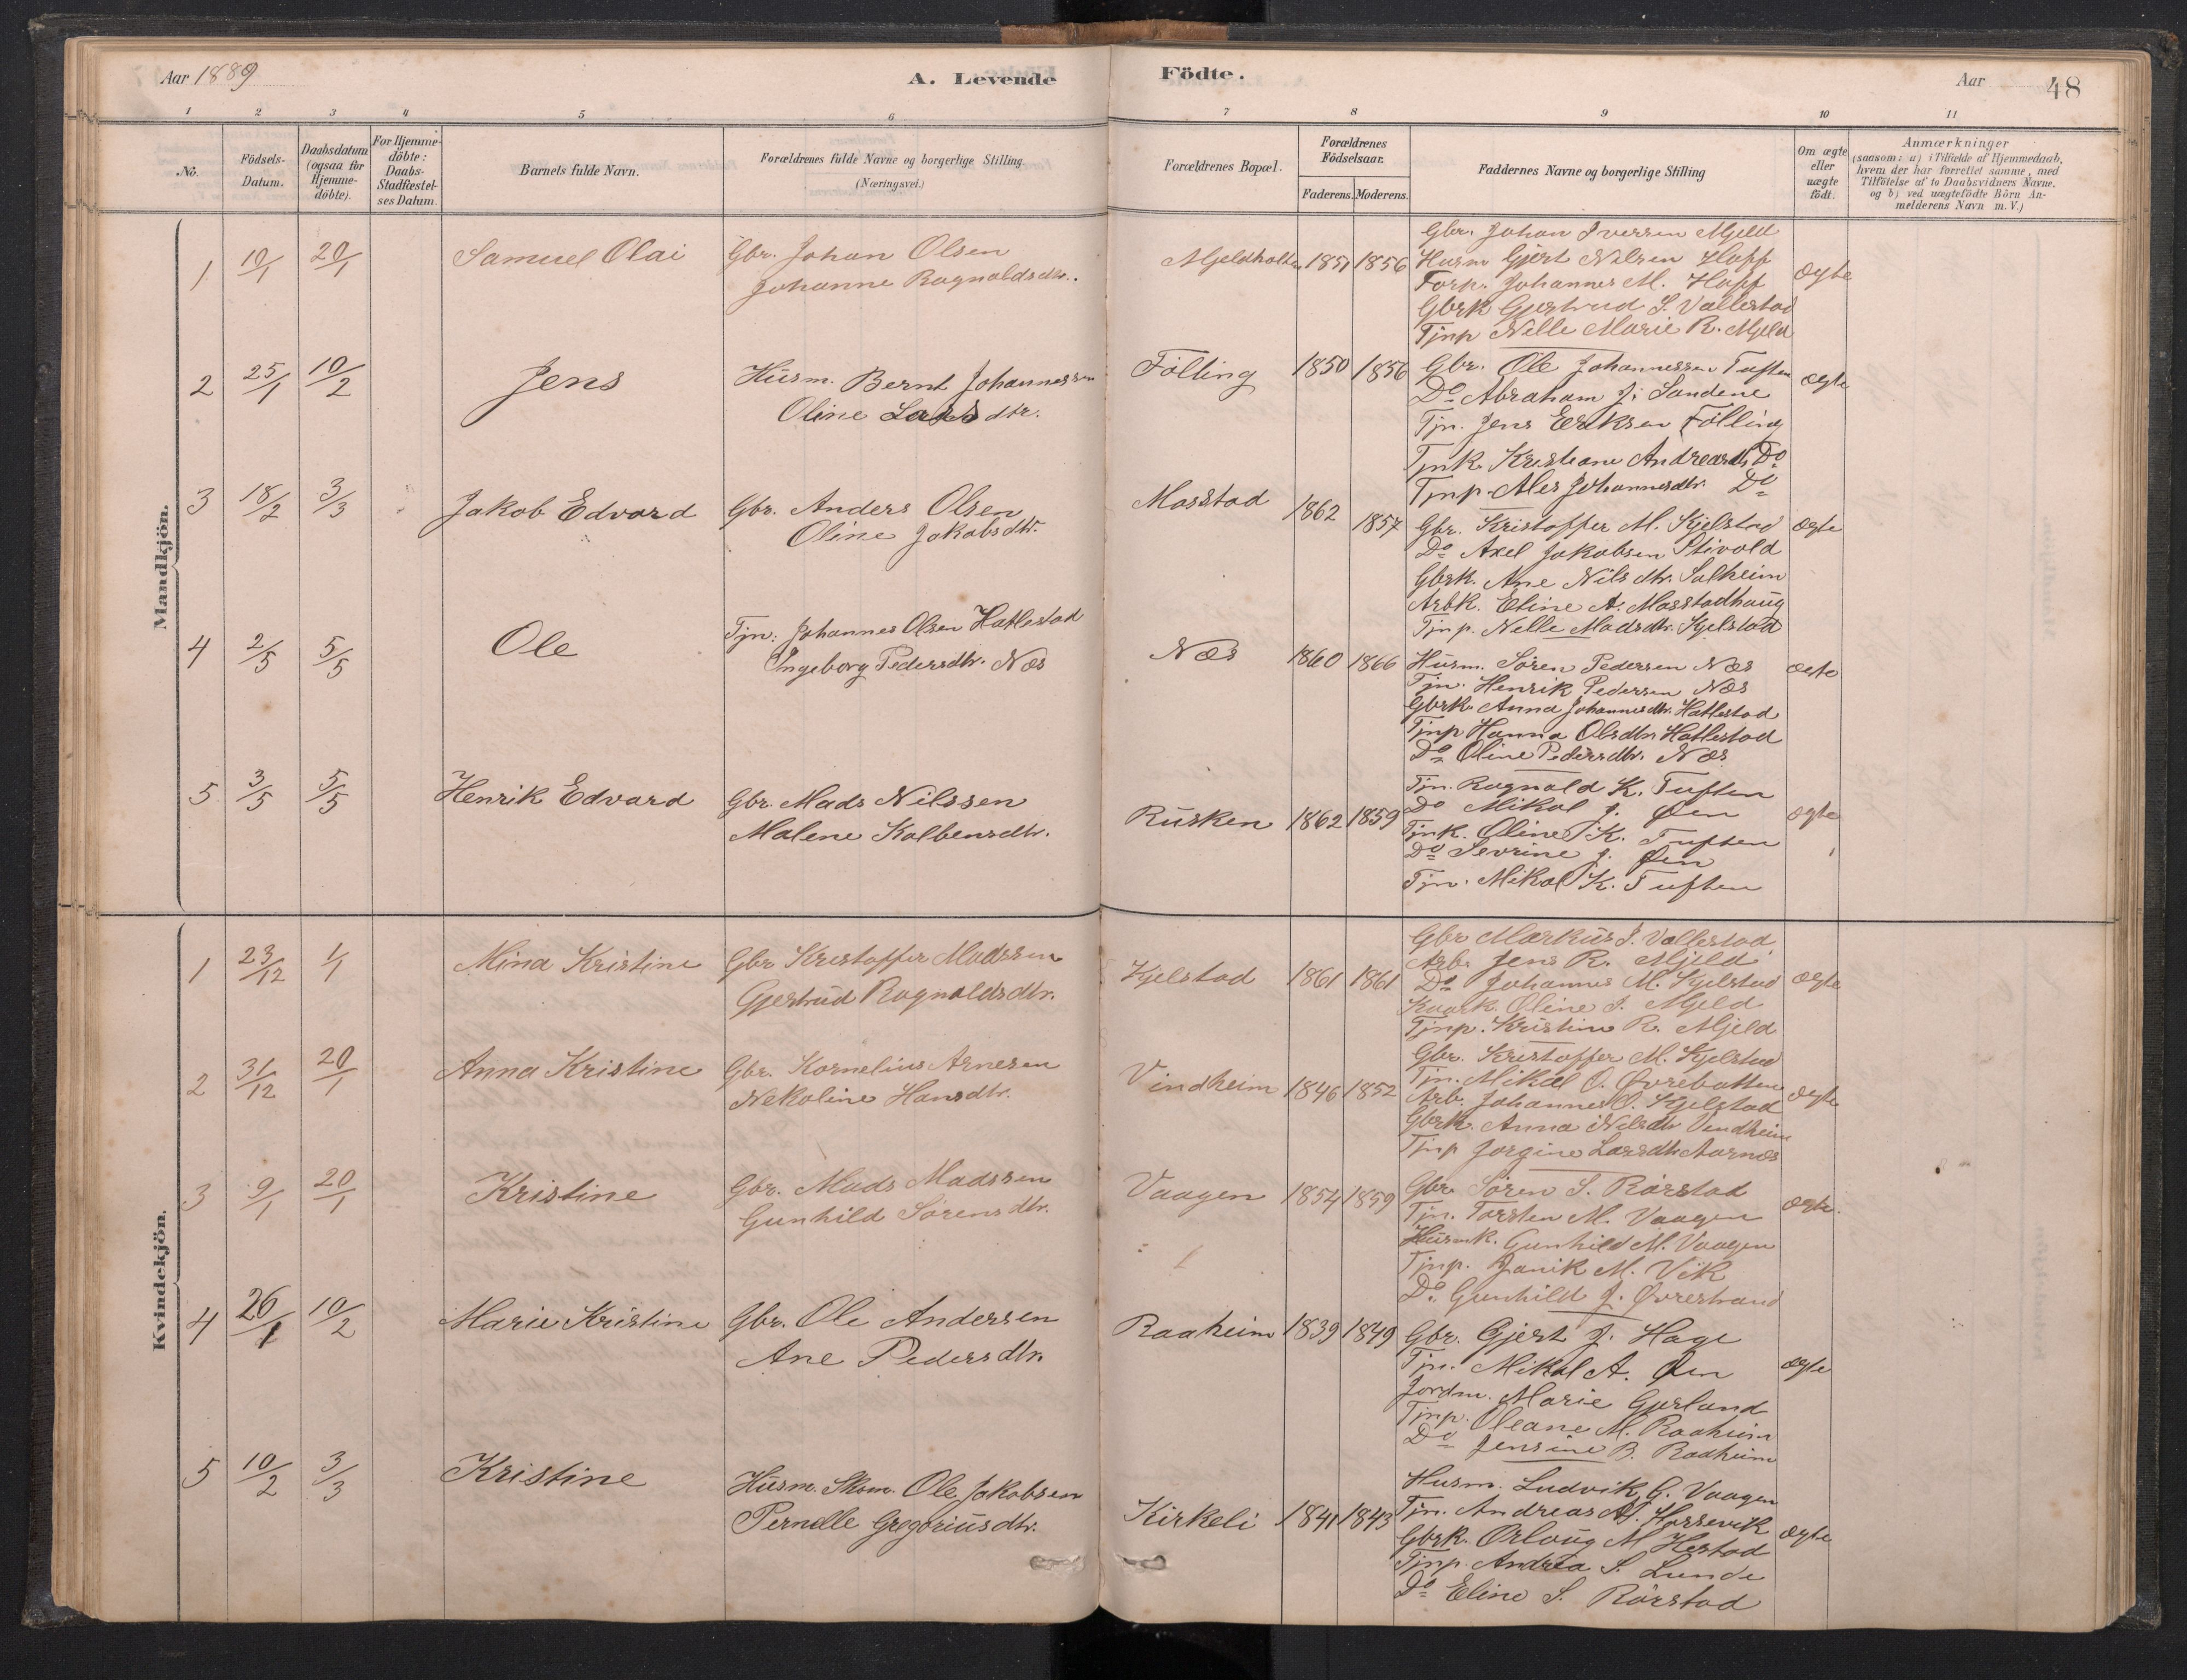 Aar 1889
A. Levende
Födte.
Aar
48
1 2 3 4 5 6 7 8 9 10 11
No.
Födsels-Datum.
Daabsdatum (ogsaa för Hjemme-döbte).
For Hjemme-döbte: Daabs-Stadfæstel-ses Datum.
Barnets fulde Navn.
Forældrenes fulde Navne og borgerlige Stilling.
(Næringsvei.)
Forældrenes Bopæl.
Forældrenes Födselsaar.
Faderens. Moderens.
Faddernes Navne og borgerlige Stilling
Om ægte eller uægte födt.
Anmærkninger
(saasom: a) i Tilfælde af Hjemmedaab,
hvem der har forrettet samme, med
Tilföielse af to Daabsvidners Navne.
og b) ved uægtefödte Börn An-
melderens Navn m. V.)
Mandkjön.
1 10/1 20/1 Samuel Olai
Gbr. Johan Olsen
Johanne Ragnaldsdtr.
Mjeldholten 1851 1856
Gbr. Johan Iversen Mjeld
Husm Gjert Nilsen Hopf
Forp. Johannes M. Hopf
Gbrk Gjertrud S. Vallestad
Tjnp Nille Marie R. Mjeld
ægte
2 25/1 10/2 Jens
Husm. Bernt Johannessen
Oline Larsdtr.
Fölling 1850 1856
Gbr. Ole Johannessen Tuften
Do Abraham J. Sandene
Tjn. Jens Eriksen Fölling
Tjnk. Kristiane Andreasdtr. Do
Tjnp. Ales Johannesdtr. Do
ægte
3 18/2 3/3 Jakob Edvard
Gbr. Anders Olsen
Oline Jakobsdtr.
Masstad 1862 1857
Gbr. Kristoffer M. Kjelstad
Do Axel Jakobsen Stivold
Gbrk. Ane Nilsdtr. Solheim
Arbk. Eline A. Masstadhaug
Tjnp. Nelle Madsdtr. Kjelstad
ægte
4 2/5 5/5 Ole
Tjn. Johannes Olsen Hatlestad
Ingeborg Pedersdtr. Næs
Næs 1860 1866
Husm. Sören Pedersen Næs
Tjn. Henrik Pedersen Næs
Gbrk. Anna Johannesdtr. Hatlestad
Tjnp Hanna Olsdtr Hatlestad
Do Oline Pedersdtr. Næs
ægte
5 3/5 5/5 Henrik Edvard
Gbr. Mads Nilssen
Malene Kolbensdtr.
Rusken 1862 1859
Tjn. Ragnald K. Tuften
Do Mikal J. Øen
Tjnk. Oline K. Tuften
Do Sevrine J. Øen
Tjn. Mikal K. Tuften
ægte
Kvindekjön.
1 23/12 1/1 Mina Kristine
Gbr Kristoffer Madssen
Gjertrud Ragnaldsdtr.
Kjelstad 1861 1861
Gbr Markus S. Vallestad
Arb. Jens R. Mjeld
Do Johannes M. Kjelstad
Kaark. Oline S. Mjeld
Tjnp. Kristine R. Mjeld
ægte
2 31/12 20/1 Anna Kristine
Gbr. Kornelius Arnesen
Nekoline Hansdtr.
Vindheim 1846 1852
Gbr. Kristoffer M. Kjelstad
Tjn. Mikal O. Øvrebotten
Arb. Johannes O. Kjelstad
Gbrk. Anna Nilsdtr Vindheim
Tjnp Jorgine Larsdtr Aarnæs
ægte
3 9/1 20/1 Kristine
Gbr. Mads Madssen
Gunhild Sörensdtr.
Vaagen 1854 1859
Gbr. Sören S. Rörstad
Tjn. Torsten M. Vaagen
Husmk. Gunhild M. Vaagen
Tjnp. Janik M. Vik
Do. Gunhild J. Øvrestrand
ægte.
4 26/1 10/2 Marie Kristine
Gbr. Ole Andersen
Ane Pedersdtr.
Raaheim 1839 1849
Gbr. Gjert J. Hage
Tjn. Mikal A. Øen
Jordm. Marie Gjerland
Tjnp. Oleane M. Raaheim
Do Jensine B. Raaheim
ægte
5 10/2 3/3 Kristine
Husm. Skom. Ole Jakobsen
Pernelle Gregoriusdtr.
Kirkeli 1841 1843
Husm. Ludvik G. Vaagen
Tjn. Andreas M. Horsevik
Gbrk. Orloug M Hestad
Tjnp. Andrea S. Lunde
Do Eline S. Rörstad
ægte